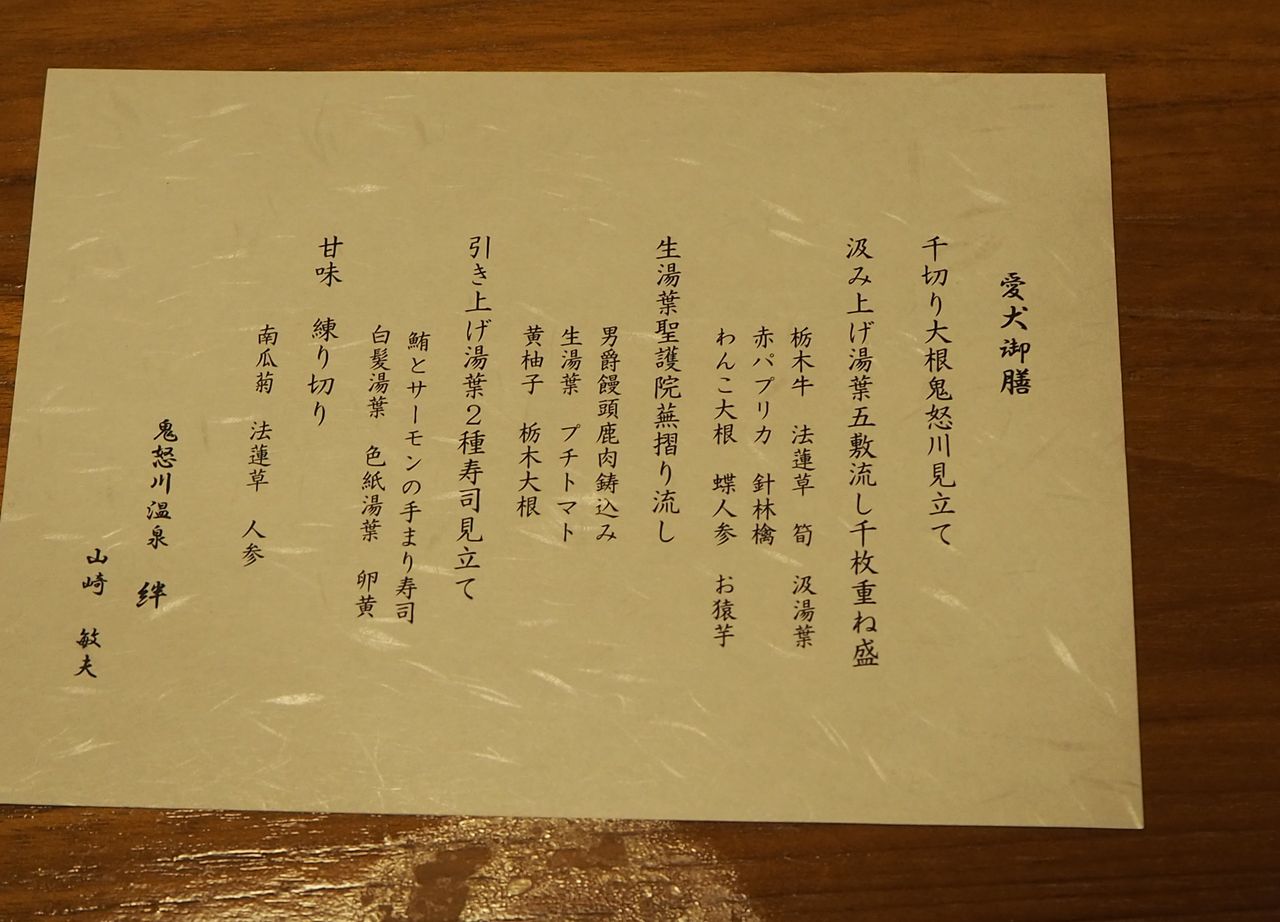 愛犬御膳
千切り大根鬼怒川見立て
汲み上げ湯葉五敷流し千枚重ね盛
栃木牛　法蓮草　筍　汲湯葉
赤パプリカ　針林檎
わんこ大根　蝶人参　お猿芋
生湯葉聖護院蕪摺り流し
男爵饅頭鹿肉鋳込み
生湯葉　プチトマト
黄柚子　栃木大根
引き上げ湯葉２種寿司見立て
鮪とサーモンの手まり寿司
白髪湯葉　色紙湯葉　卵黄
甘味　練り切り
南瓜菊　法蓮草　人参
鬼怒川温泉　絆
山崎　敏夫